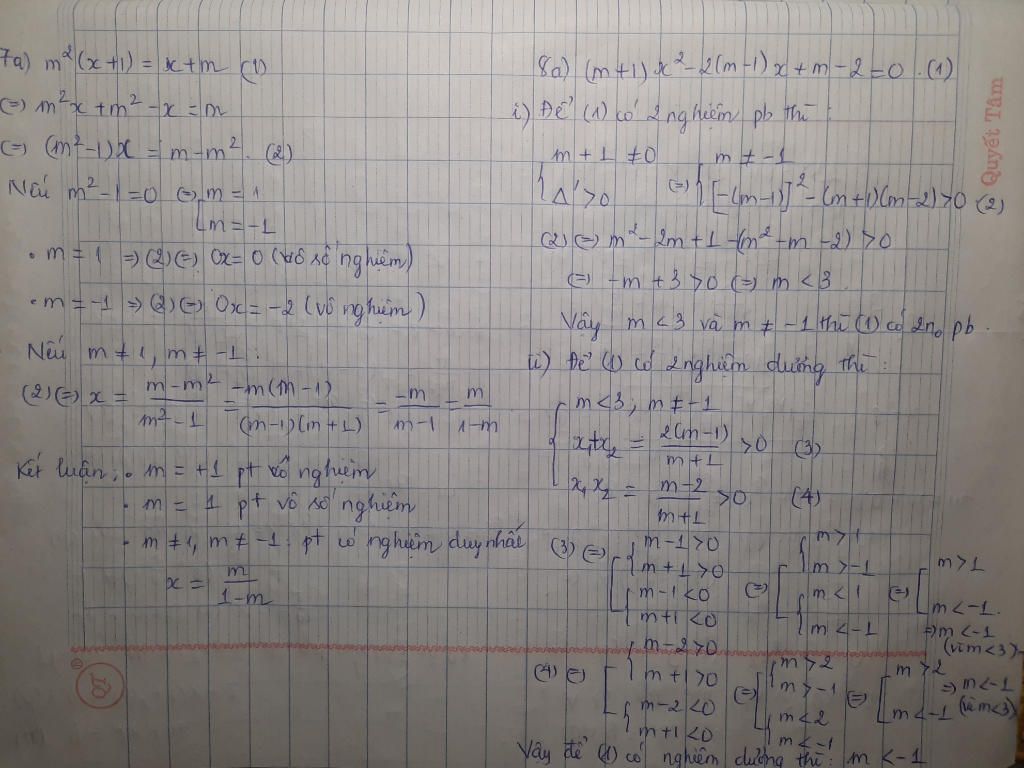 7a) m²(x+1) = x+m (1)
(=) m²x+m²-x=m
(=) (m²-1)x = m-m². (2)
Nếu m²-1=0 (=) [m=1
[m=-1
• m=1 => (2) (=) 0x=0 (vô số nghiệm)
• m=-1 => (2) (=) 0x=-2 (vô nghiệm)
Nếu m≠1, m≠-1:
(2) (=) x = (m-m²)/(m²-1) = -m(m-1)/((m-1)(m+1)) = -m/(m-1) = m/(1-m)
Kết luận: • m=+1 pt vô nghiệm
• m = 1 pt vô số nghiệm
• m≠1, m≠-1: pt có nghiệm duy nhất
x = m/(1-m)
8a) (m+1)x²-2(m-1)x+m-2=0.(1)
i) Để (1) có 2 nghiệm pb thì:
{m+1≠0 (=) {m≠-1
{Δ'>0 {[-(m-1)]²-(m+1)(m-2)>0 (2)
(2) (=) m²-2m+1-(m²-m-2)>0
(=) -m+3>0 (=) m<3.
Vậy m<3 và m≠-1 thì (1) có 2no pb.
ii) Để (1) có 2 nghiệm dương thì:
{m<3; m≠-1
{x₁+x₂ = 2(m-1)/(m+1) >0 (3)
{x₁x₂ = (m-2)/(m+1) >0 (4)
(3) (=) [{m-1>0 (=) [{m>1 (=) [m>1
{m+1>0 {m>-1
[{m-1<0 [{m<1 [m<-1.
{m+1<0 {m<-1 =>m<-1
(vì m<3)
(4) (=) [{m-2>0 (=) [{m>2 (=) [m>2
{m+1>0 {m>-1 => m<-1
[{m-2<0 [{m<2 [m<-1 (vì m<3)
{m+1<0 {m<-1
Vậy để (1) có nghiệm dương thì: m<-1
Quyết Tâm